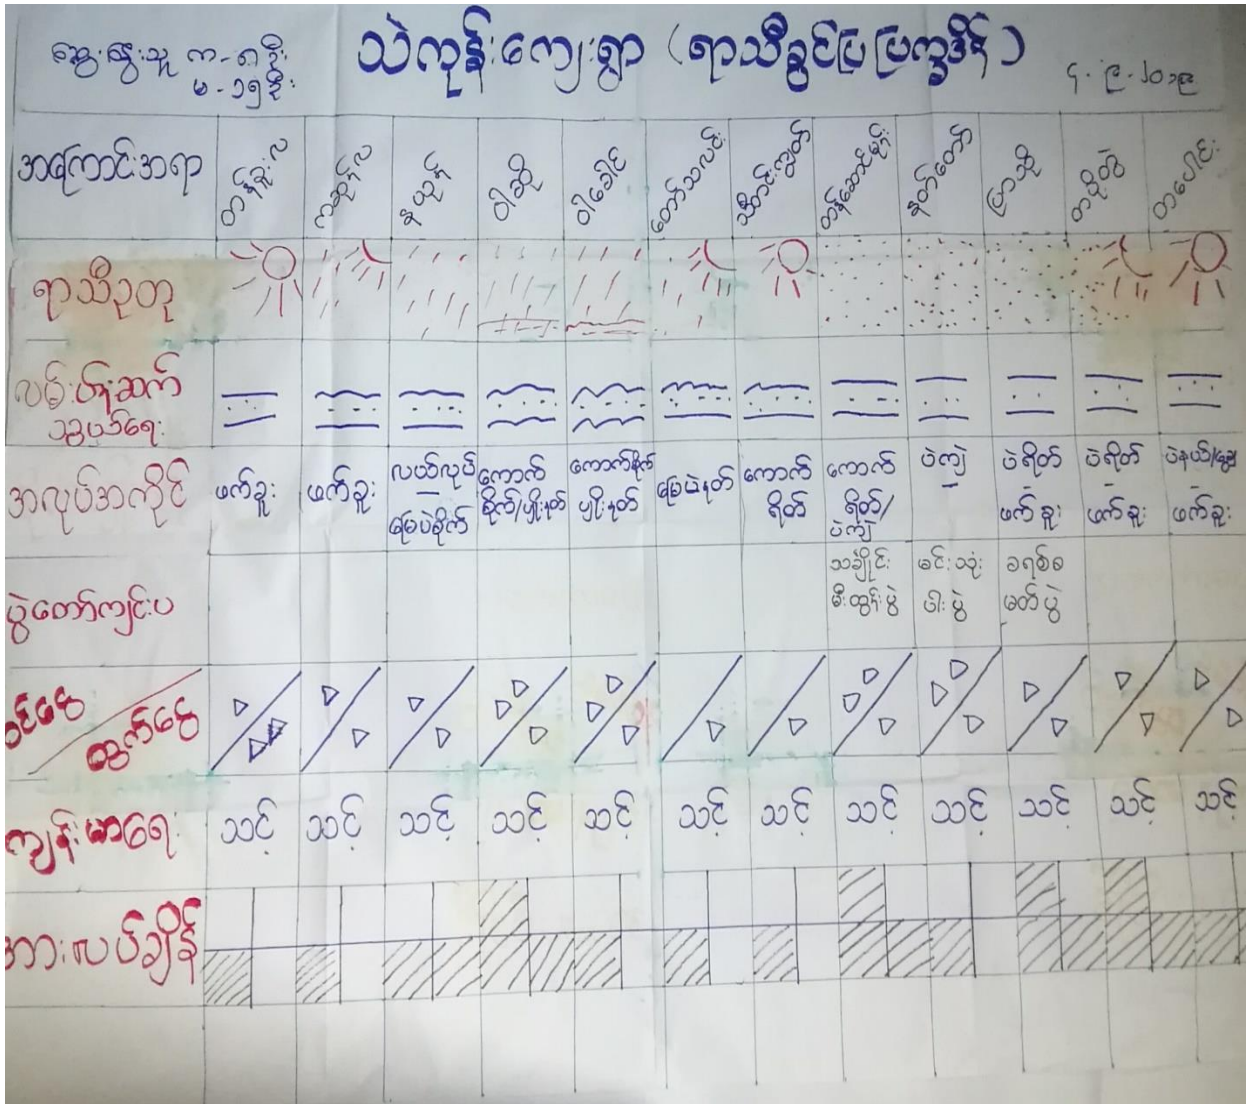 ဆွေးနွေးသူ က - ၈ ဦး
မ - ၁၅ ဦး
သဲကုန်းကျေးရွာ (ရာသီခွင်ပြ ပြက္ခဒိန်)
၄ - ၉ - ၂၀၁၉
အကြောင်းအရာ တန်ခူးလ ကဆုန်လ နယုန် ဝါဆို ဝါခေါင် တော်သလင်း သီတင်းကျွတ် တန်ဆောင်မုန်း နတ်တော် ပြာသို တပို့တွဲ တပေါင်း
ရာသီဥတု
လမ်းပန်းဆက်
သွယ်ရေး
အလုပ်အကိုင် ဖက်ခူး ဖက်ခူး လယ်လုပ် ကောက် ကောက်စိုက် မြေပဲနုတ် ကောက် ကောက် ပဲကျဲ ပဲရိတ် ပဲရိတ် ပဲနယ်/
မြေပဲစိုက် စိုက်/ပျိုးနုတ် ပျိုးနုတ် ရိတ် ရိတ်/ ဖက်ခူး ဖက်ခူး ဖက်ခူး
ပဲကျဲ
ပွဲတော်ကျင်းပ သင်္ချိုင်း မင်းသုံး ခရစ်စ
မီးထွန်းပွဲ ပါးပွဲ မတ်ပွဲ
ဝင်ငွေ
ထွက်ငွေ
ကျန်းမာရေး သင့် သင့် သင့် သင့် သင့် သင့် သင့် သင့် သင့် သင့် သင့် သင့်
အားလပ်ချိန်